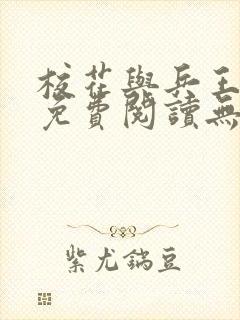 校花與兵王
免費閱讀無
紫尤鎬豆